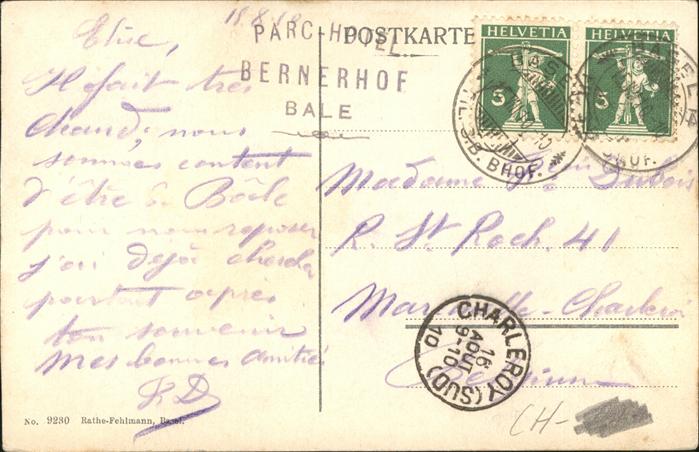 Elise,
Il fait très
chaud, nous
sommes content
d'être à Bâle
pour nous reposer
j'ai déjà cherché
partout après
ton souvenir
mes bonnes amitiés
F.D
18.8.10
PARC-HOTEL
BERNERHOF
BALE
POSTKARTE
HELVETIA
5
HELVETIA
5
BASEL
BHOF.
BASEL
BHOF.
Madame Dubois
R. St Roch. 41
Marcinelle-Charleroi
Belgique
CHARLEROY (SUD)
16
AOUT
9-10
10
No. 9230 Rathe-Fehlmann, Basel.
CH-